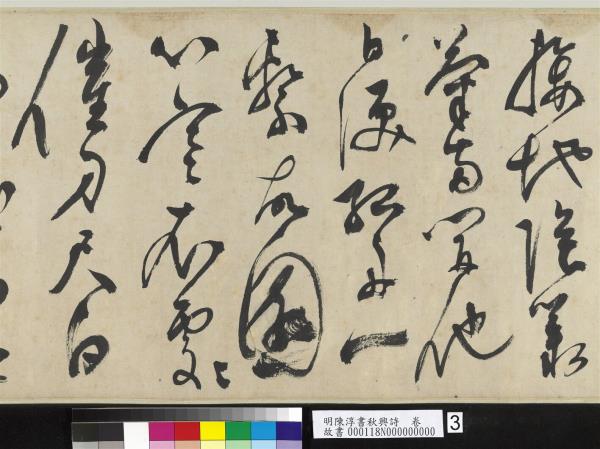 接地陰叢
菊兩開他
日淚孤舟一
繫故園
心寒衣處〻
催刀尺白
明陳淳書秋興詩 卷
故書000118N000000000
3